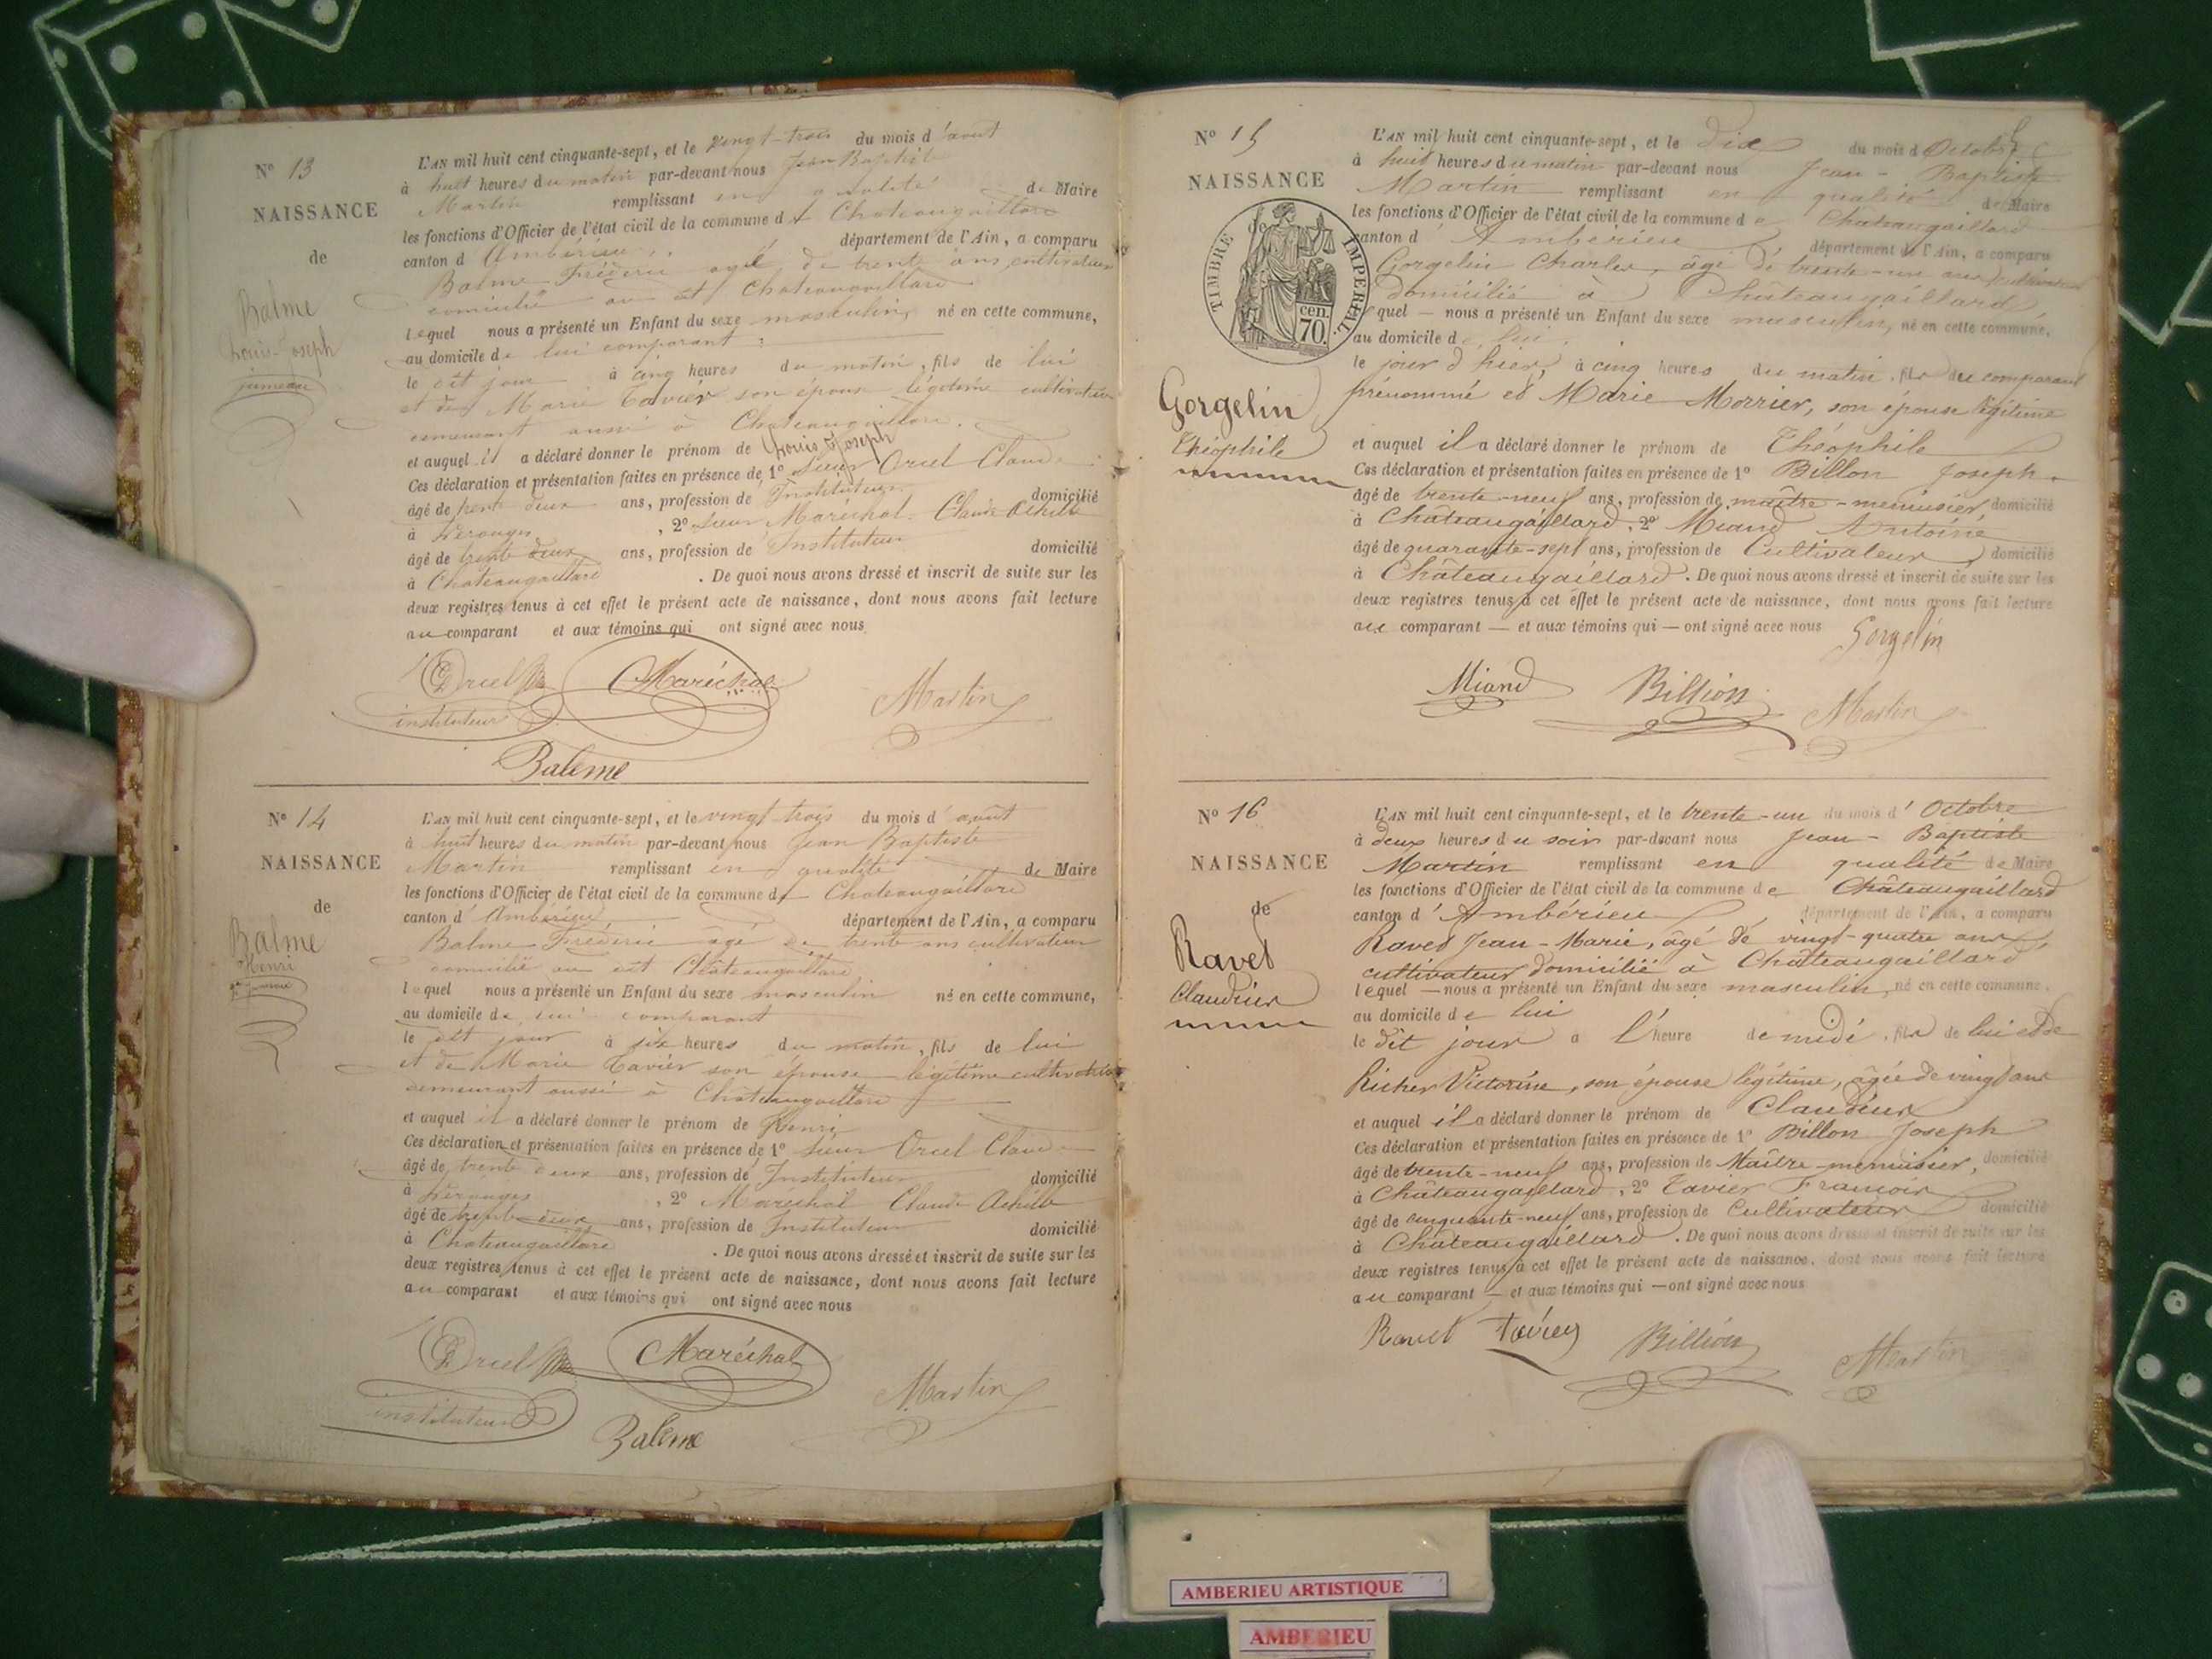 N° 13
NAISSANCE
de
Balme
Louis-Joseph
jumeau
L'AN mil huit cent cinquante-sept, et le vingt-trois du mois d'août
à huit heures du matin par-devant nous Jean Baptiste
Martin remplissant en qualité de Maire
les fonctions d'Officier de l'état civil de la commune de Chateaugaillard
canton d'Ambérieu département de l'Ain, a comparu
Balme Frédéric agé de trente ans, cultivateur
domicilié au dit Chateaugaillard
lequel nous a présenté un Enfant du sexe masculin, né en cette commune,
au domicile de lui comparant
le dit jour à cinq heures du matin, fils de lui
et de Marie Tavier son épouse légitime cultivatrice
demeurant aussi à Chateaugaillard.
et auquel il a déclaré donner le prénom de Louis Joseph
Ces déclaration et présentation faites en présence de 1° Sieur Orcel Claude
âgé de trente deux ans, profession de Instituteur domicilié
à Pérouges, 2° Sieur Maréchal Claude Achille
âgé de trente deux ans, profession de Instituteur domicilié
à Chateaugaillard. De quoi nous avons dressé et inscrit de suite sur les
deux registres tenus à cet effet le présent acte de naissance, dont nous avons fait lecture
au comparant et aux témoins qui ont signé avec nous
Orcel Maréchal Martin
instituteur
Balme
N° 14
NAISSANCE
de
Balme
Henri
2e jumeau
L'AN mil huit cent cinquante-sept, et le vingt trois du mois d'août
à huit heures du matin par-devant nous Jean Baptiste
Martin remplissant en qualité de Maire
les fonctions d'Officier de l'état civil de la commune de Chateaugaillard
canton d'Ambérieu département de l'Ain, a comparu
Balme Frédéric âgé de trente ans cultivateur
domicilié au dit Châteaugaillard
lequel nous a présenté un Enfant du sexe masculin né en cette commune,
au domicile de lui comparant
le dit jour à six heures du matin, fils de lui
et de Marie Tavier son épouse légitime cultivatrice
demeurant aussi à Châteaugaillard
et auquel il a déclaré donner le prénom de Henri
Ces déclaration et présentation faites en présence de 1° Sieur Orcel Claude
âgé de trente deux ans, profession de Instituteur domicilié
à Pérouges, 2° Maréchal Claude Achille
âgé de trente deux ans, profession de Instituteur domicilié
à Chateaugaillard. De quoi nous avons dressé et inscrit de suite sur les
deux registres tenus à cet effet le présent acte de naissance, dont nous avons fait lecture
au comparant et aux témoins qui ont signé avec nous
Orcel Maréchal Martin
instituteur
Balme
N° 15
NAISSANCE
de
TIMBRE IMPERIAL
cen.
70.
Gorgelin
Théophile
L'AN mil huit cent cinquante-sept, et le dix du mois d Octobre
à huit heures du matin par-devant nous Jean-Baptiste
Martin remplissant en qualité de Maire
les fonctions d'Officier de l'état civil de la commune de Chateaugaillard
canton d'Ambérieu département de l'Ain, a comparu
Gorgelin Charles, âgé de trente-un ans, cultivateur
domicilié à Châteaugaillard,
quel — nous a présenté un Enfant du sexe masculin, né en cette commune,
au domicile de lui
le jour d'hier, à cinq heures du matin, fils du comparant
prénommé et Marie Morrier, son épouse légitime
et auquel il a déclaré donner le prénom de Théophile
Ces déclaration et présentation faites en présence de 1° Billon Joseph
âgé de trente-neuf ans, profession de maître-menuisier, domicilié
à Châteaugaillard, 2° Miand Antoine
âgé de quarante-sept ans, profession de Cultivateur, domicilié
à Châteaugaillard. De quoi nous avons dressé et inscrit de suite sur les
deux registres tenus à cet effet le présent acte de naissance, dont nous avons fait lecture
au comparant — et aux témoins qui — ont signé avec nous Gorgelin
Miand Billion Martin
N° 16
NAISSANCE
de
Ravet
Claudius
L'AN mil huit cent cinquante-sept, et le trente-un du mois d'Octobre
à deux heures du soir par-devant nous Jean-Baptiste
Martin remplissant en qualité de Maire
les fonctions d'Officier de l'état civil de la commune de Châteaugaillard
canton d'Ambérieu, département de l'Ain, a comparu
Ravet Jean-Marie, âgé de vingt-quatre ans,
cultivateur domicilié à Châteaugaillard
lequel — nous a présenté un Enfant du sexe masculin, né en cette commune,
au domicile de lui
le dit jour à l'heure de midi, fils de lui et de
Richer Victorine, son épouse légitime, âgée de vingt ans
et auquel il a déclaré donner le prénom de Claudius
Ces déclaration et présentation faites en présence de 1° Billon Joseph
âgé de trente-neuf ans, profession de Maître-menuisier, domicilié
à Châteaugaillard, 2° Tavier François
âgé de cinquante-neuf ans, profession de Cultivateur domicilié
à Châteaugaillard. De quoi nous avons dressé et inscrit de suite sur les
deux registres tenus à cet effet le présent acte de naissance, dont nous avons fait lecture
au comparant — et aux témoins qui — ont signé avec nous
Ravet Tavier Billion Martin
AMBERIEU ARTISTIQUE
AMBERIEU